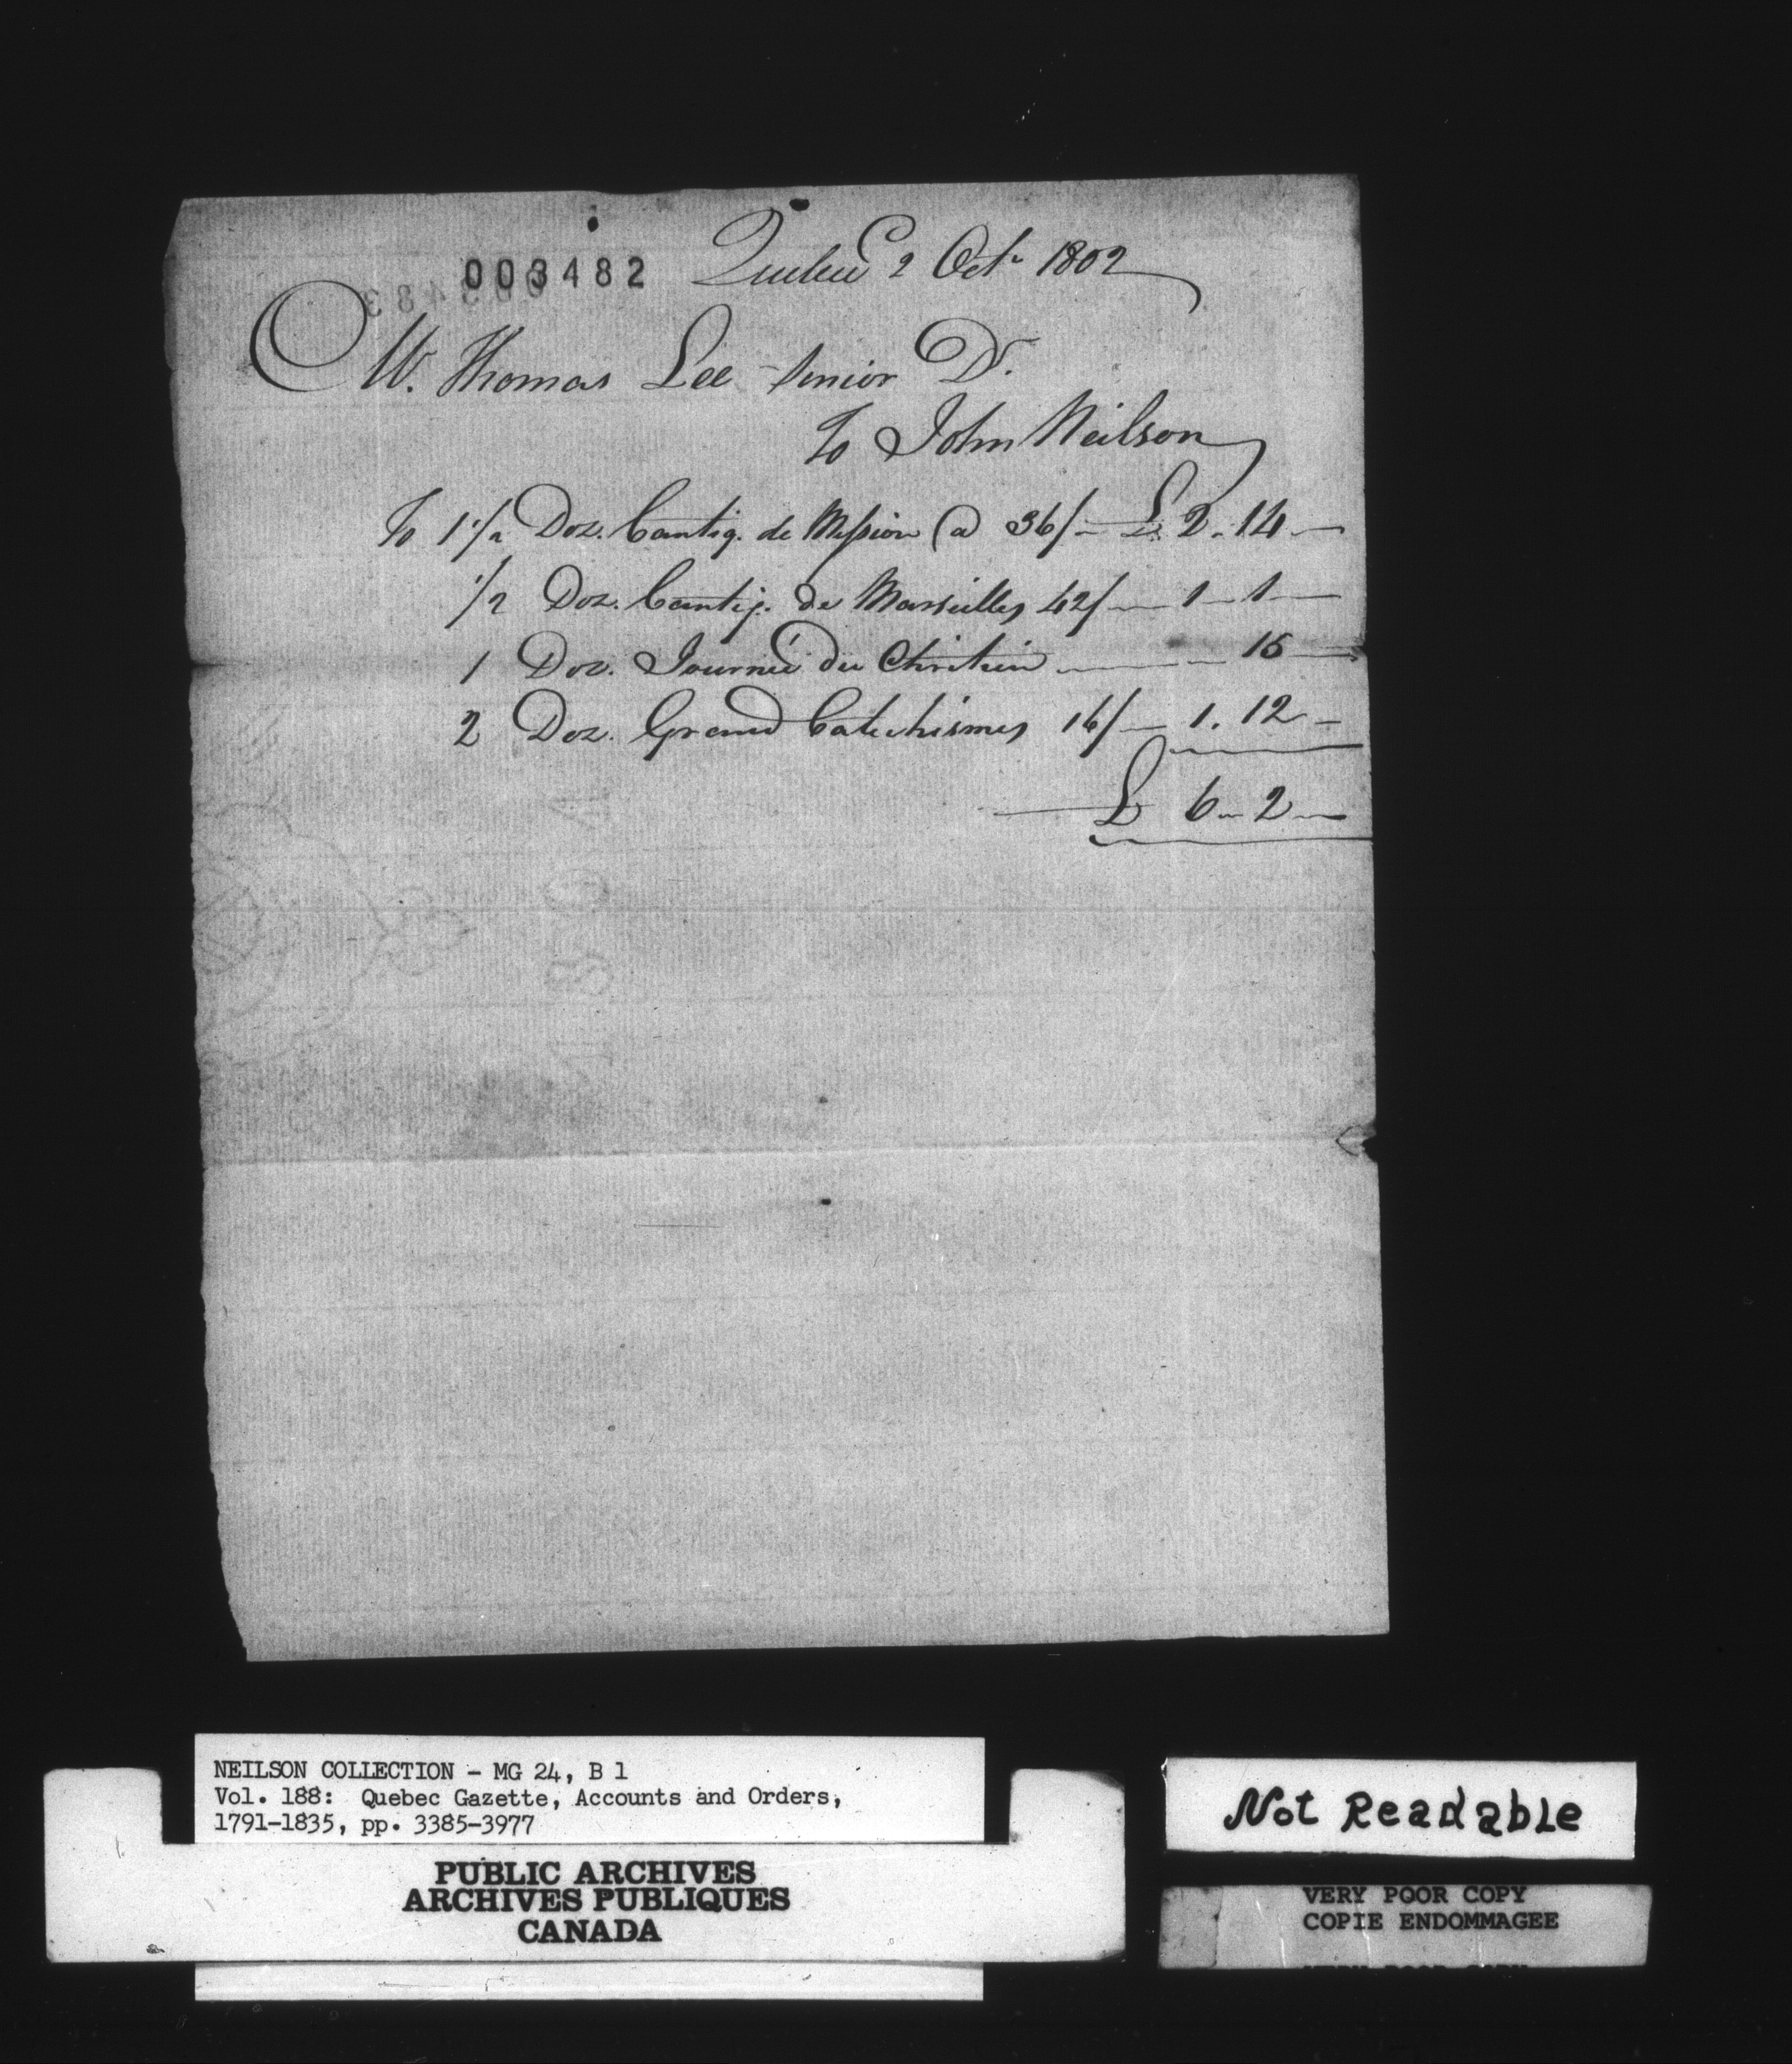 003482 Quebec 2 Octr 1802
Mr. Thomas Lee Senior Dr.
To John Neilson
To 1 1/2 Doz. Cantiq. de Mission @ 36/- £ 2. 14 —
1/2 Doz. Cantiq. de Marseilles 42/ — 1 - 1 —
1 Doz. Journée du Chretien — 15 —
2 Doz. Grand Catechismes 16/ — 1. 12 —
£ 6 - 2 —
NEILSON COLLECTION - MG 24, B 1
Vol. 188: Quebec Gazette, Accounts and Orders,
1791-1835, pp. 3385-3977
PUBLIC ARCHIVES
ARCHIVES PUBLIQUES
CANADA
Not Readable
VERY POOR COPY
COPIE ENDOMMAGEE